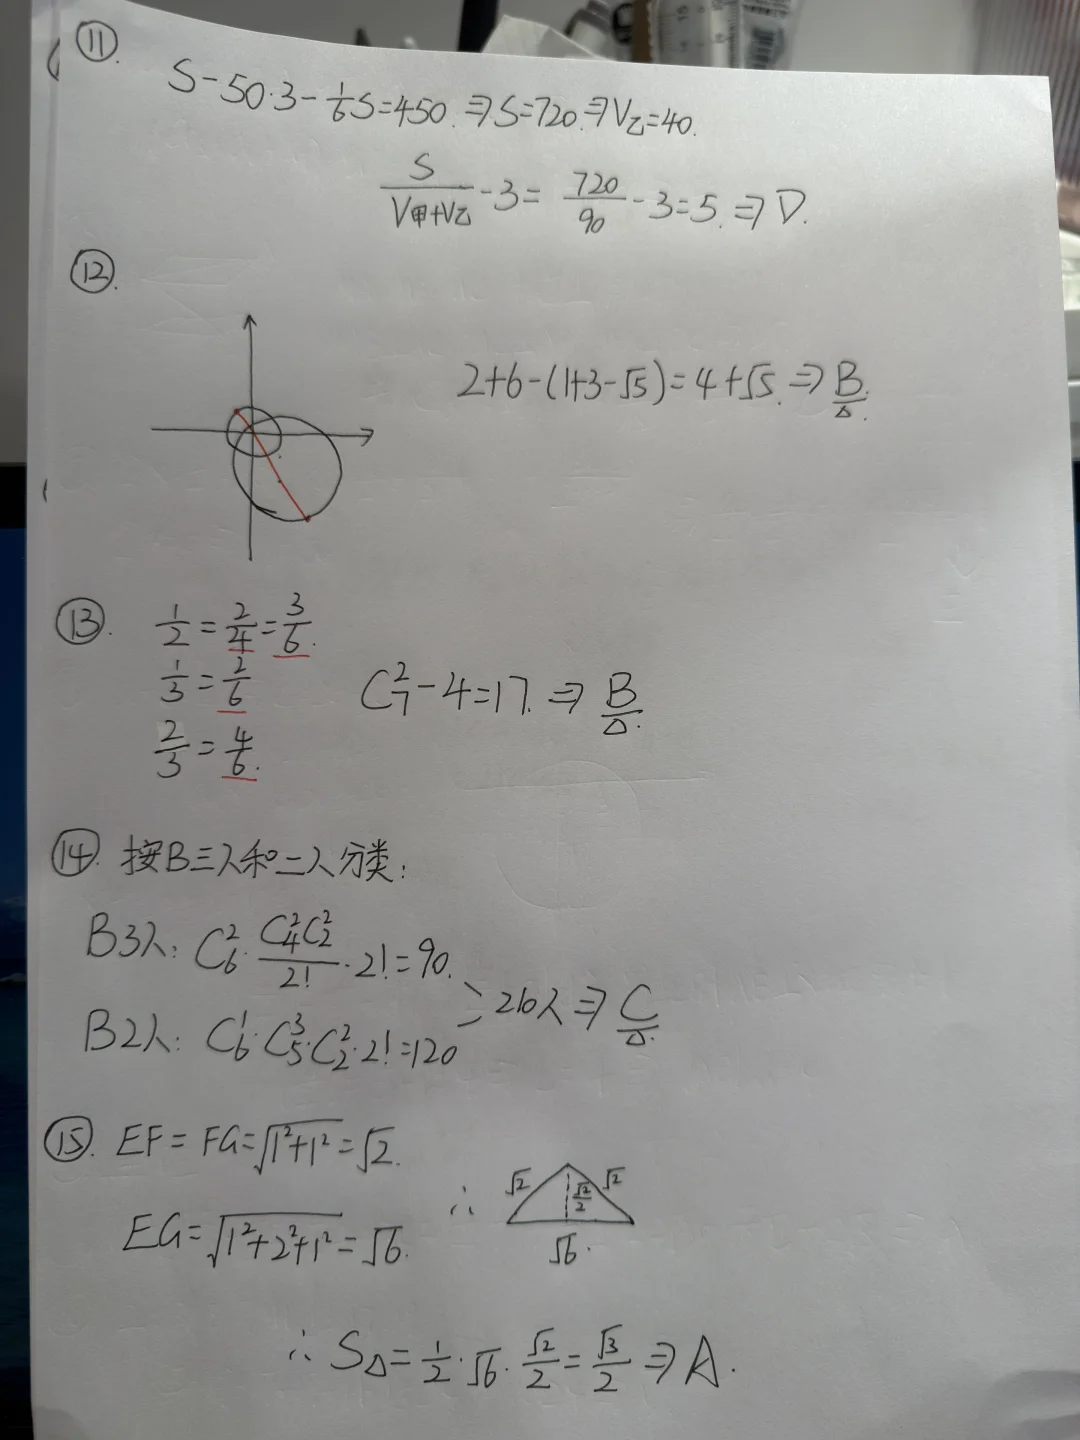 ⑪.
S-50·3-1/6 S=450. ⇒S=720.⇒V乙=40.
S/(V甲+V乙) -3= 720/90 -3=5. ⇒ D.
⑫.
2+6-(1+3-√5)=4+√5. ⇒ B.
⑬. 1/2=2/4=3/6.
1/3=2/6
C₇²-4=17. ⇒ B.
2/3=4/6.
⑭. 按B三人和二人分类:
B3人: C₆²· C₄²C₂²/2! ·2!=90.
210人⇒ C.
B2人: C₆¹·C₅³·C₂²·2!=120
⑮. EF= FG=√(1²+1²)=√2.
√2 √2/2 √2
EG=√(1²+2²+1²)=√6. ∴
√6.
∴ S△=1/2·√6·√2/2=√3/2⇒A.